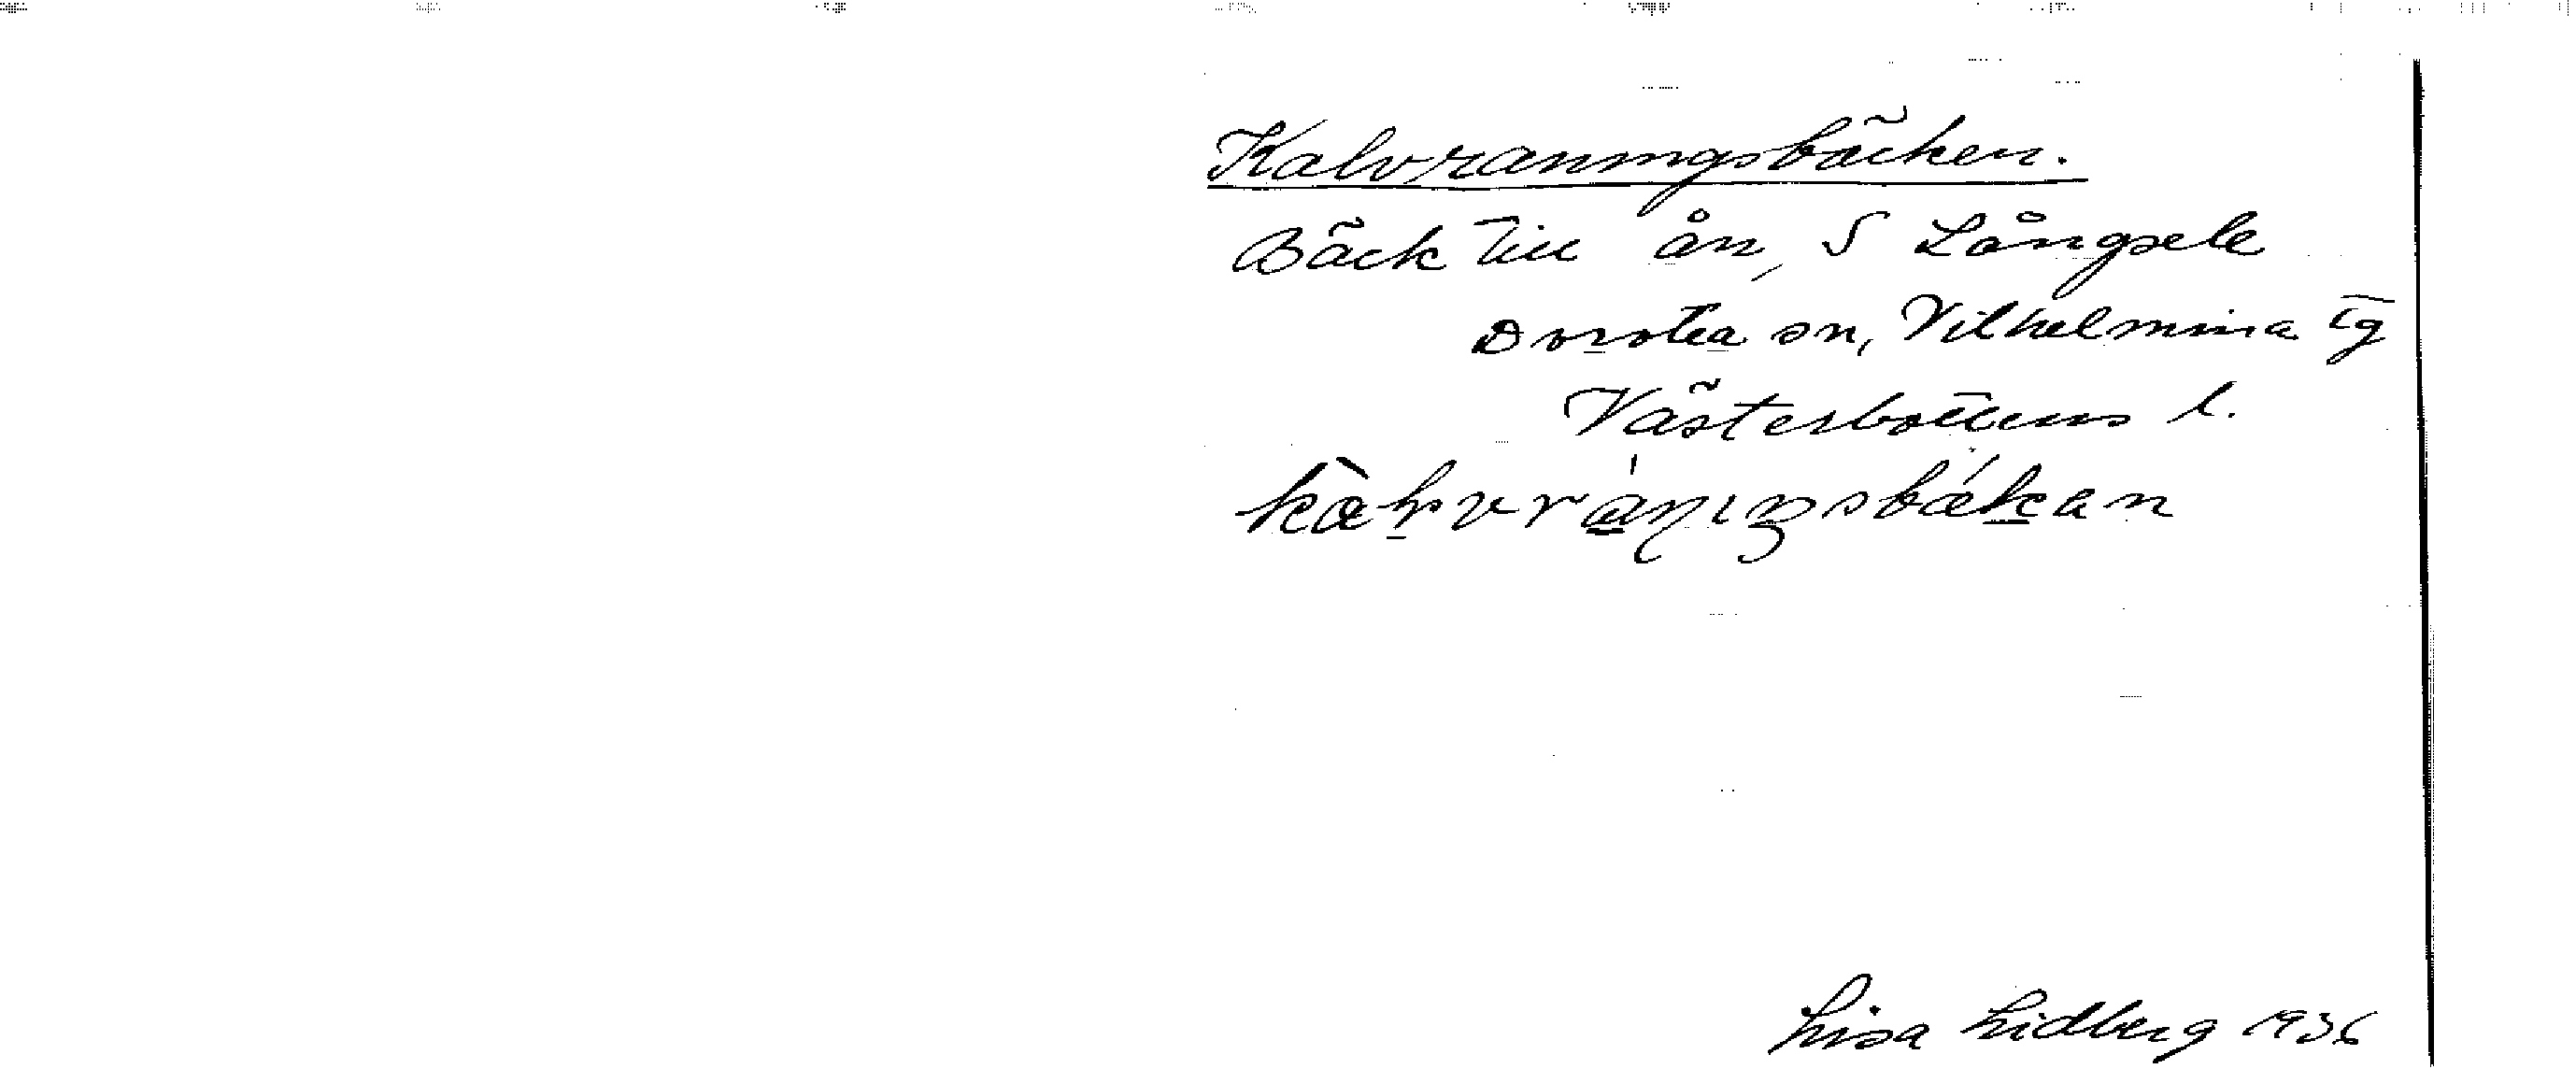 Kalvraningsbäcken.
Bäck till ån, S Långsele
Dorotea sn, Vilhelmina tg
Västerbottens l.
Lisa Lidberg 1936